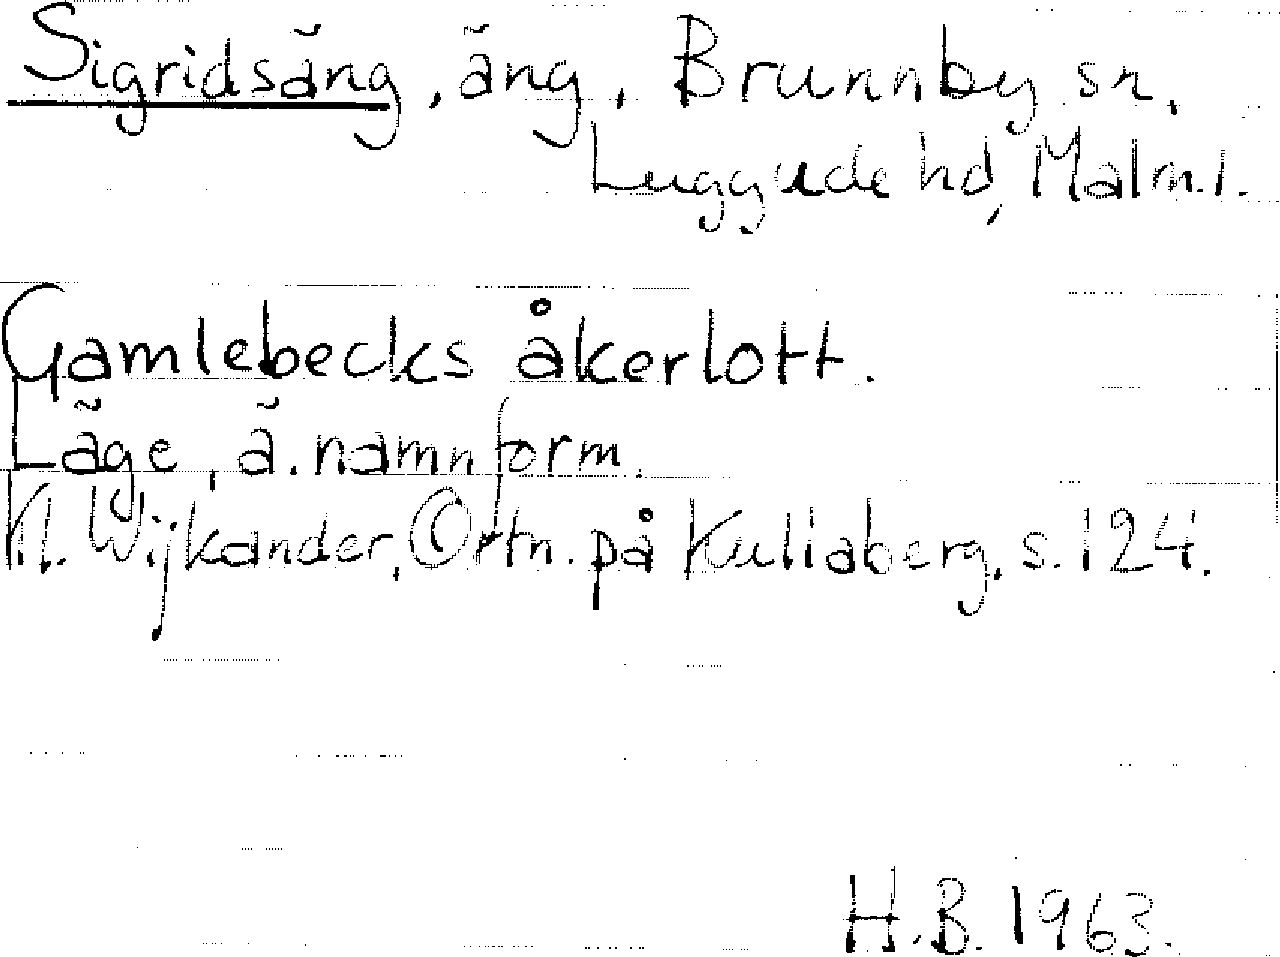 Sigridsäng, äng, Brunnby sn.
Luggude hd, Malm.l.
Gamlebecks åkerlott.
Läge, ä. namnform.
Kl. Wijkander, Ortn. på Kullaberg, s. 124.
H.B. 1963.